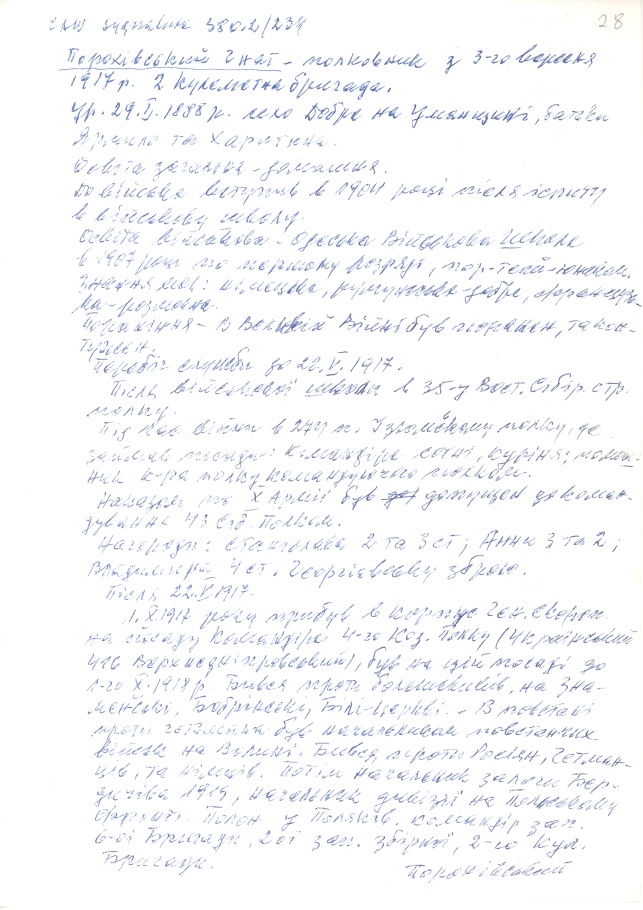 380.2/234
28
Порохівський Гнат - полковник з 3-го вересня
1917 р. 2 Кулеметна бригада.
Ур. 29.II.1888 р. село Добра на Уманщині, батьки
та Харитина.
Освіта загальна - домашня.
До війська вступив в 1904 році після іспиту
в військову школу.
Освіта військова - Одеська Військова Школа
в 1907 році по першому розряді,
Знання мов: німецька, румунська - добре, француз-
ка - розмовна.
Поранення - В Великій Війні був поранен, та кон-
тужен.
Перебіг служби до 22.V.1917.
Після військової школи в 35-у Вост. Сібір. стр.
полку.
Під час війни в 274 п. полку, де
займав посади: Командіра сотні, куріня, помош-
ник к-ра полку командуючого полком.
Наказом по X Армії був допущен до коман-
дування 43 Сіб. Полком.
Нагороди: Станіслава 2 та 3 ст; Анни 3 та 2;
Владиміра 4 ст. Георгієвську зброю.
Після 22.V.1917.
1.X.1917 року прибув в корпус Ген. Скороп.
на посаду Командіра 4-го Коз. Полку (Український
416 Верхнєдніпровський), був на цій посаді до
1-го X.1918 р. Бився проти большевиків, на Зна-
менські, Бобринські, Білі-Церкві. - В повстані
проти гетьмана був начальником повстанчих
військ на Волині. Бився проти Росіян, Гетман-
ців, та німців. Потім начальник залоги Бер-
дичіва 1919, начальник дивізії на Польському
фронті. Полон у Поляків. командір зап.
6-ої Бригади, 2ої зап. збірної, 2-го Кул.
Бригади.
Порохівський